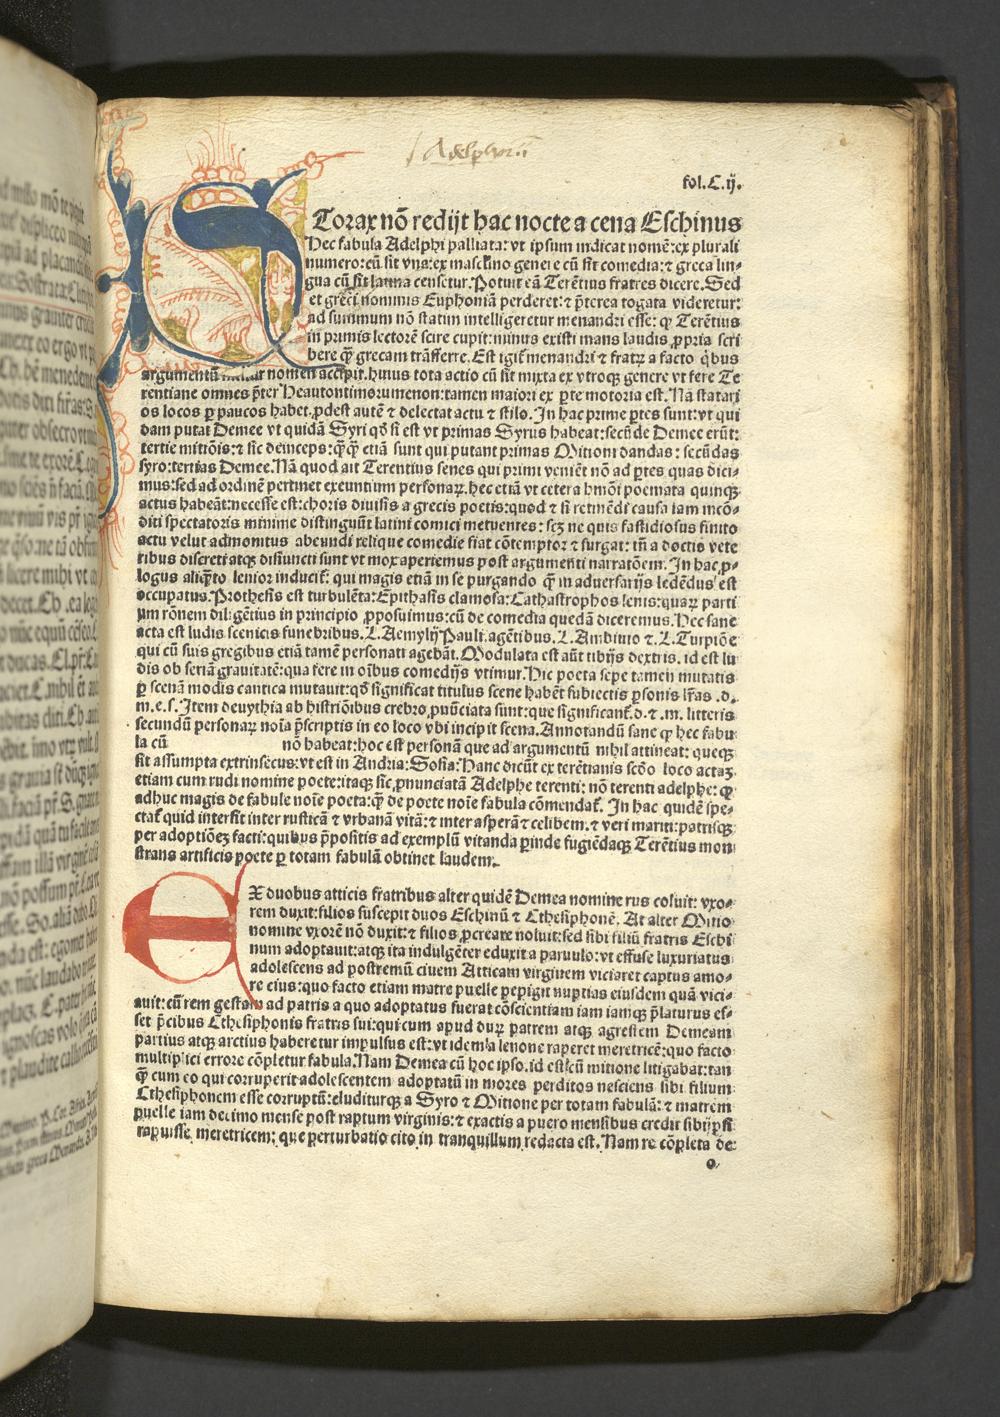 Adelphorū
fol.C.ij.
STorax nō redijt hac nocte a cena Eschinus
Hec fabula Adelphi palliata: vt ipsum indicat nomē: ex plurali
numero: cū sit vna: ex masculino genere cū sit comedia: ⁊ greca lin⸗
gua cū sit latina censetur. Potuit eā Terētius fratres dicere. Sed
et greci nominis Euphoniā perderet: ⁊ p̄terea togata videretur:
ad summum nō statim intelligeretur menandri esse: qꝫ Terētius
in primis lectorē scire cupit: minus existi mans laudis ꝓpria scri
bere qꝫ̄ grecam trāsferre. Est igit᷑ menandri ⁊ fratꝝ a facto q̇bus
argumentū nomen accipit. huius tota actio cū sit mixta ex vtroqꝫ genere vt fere Te
rentiane omnes p̄ter Heautontimorumenon: tamen maiori ex ꝑte motoria est. Nā statari
os locos ꝑ paucos habet. ꝓdest autē ⁊ delectat actu ⁊ stilo. In hac prime ꝑtes sunt: vt qui
dam putat Demee vt quidā Syri qd̕ si est vt primas Syrus habeat: secūde Demee erūt:
tertie mitiōis: ⁊ sic deinceps: qꝫ̄qꝫ̄ etiā sunt qui putant primas Mitioni dandas: secūdas
syro: tertias Demee. Nā quod ait Terentius senes qui primi veniēt nō ad ꝑtes quas dici⸗
mus: sed ad ordinē pertinet exeuntium personaꝝ. hec etiā vt cetera hmōi poemata quinqꝫ
actus habeāt: necesse est: choris diuisis a grecis poetis: quod ⁊ si retinēdi causa iam incō⸗
diti spectatoris minime distinguūt latini comici metuentes: scꝫ ne quis fastidiosus finito
actu velut admonitus abeundi relique comedie fiat cōtemptor ⁊ surgat: tn̄ a doctis vete
ribus discreti atqꝫ disiuncti sunt vt mox aperiemus post argumenti narratōem. In hac ꝓ⸗
logus aliqꝫto lenior inducit᷑: qui magis etiā in se purgando qꝫ̄ in aduersarijs ledēdus est
occupatus. Prothesis est turbulēta: Epithasis clamosa: Cathastrophos lenis: quaꝝ parti
um rōnem diligētius in principio ꝓposuimus: cū de comedia quedā diceremus. Hec sane
acta est ludis scenicis funebribus. L. Aemylij Pauli. agētibus. L. Ambiuio ⁊. L. Turpiōe
qui cū suis gregibus etiā tamē personati agebāt. Modulata est aūt tibijs dextris. id est lu
dis ob seriā grauitatē: qua fere in oībus comedijs vtimur. Hic poeta sepe tamen mutatis
ꝑ scenā modis cantica mutauit: qd̕ significat titulus scene habēt subiectis ꝑsonis lr̄as .d.
m. e. s. Item deuythia ab histriōibus crebro ꝓnūciata sunt: que significant᷑ .d. ⁊ .m. litteris
secundū personaꝝ noīa p̄scriptis in eo loco vbi incipit scena. Annotandū sane qꝫ hec fabu⸗
la cū nō habeat: hoc est personā que ad argumentū nihil attineat: queqꝫ
sit assumpta extrinsecus: vt est in Andria: Sosia: Hanc dicūt ex terētianis scd̕o loco actaꝫ
etiam cum rudi nomine poete: itaqꝫ sic ꝓnunciatā Adelphe terenti: nō terenti adelphe: qꝫ
adhuc magis de fabule noīe poeta: qꝫ̄ de poete noīe fabula cōmendat᷑. In hac quidē spe⸗
ctat᷑ quid intersit inter rusticā ⁊ vrbanā vitā: ⁊ inter asperā ⁊ celibem. ⁊ veri mariti: patrisqꝫ
per adoptiōeꝫ facti: quibus p̄positis ad exemplū vitanda ꝑinde fugiēdaqꝫ Terētius mon
strans artificis poete ꝑ totam fabulā obtinet laudem.
EX duobus atticis fratribus alter quidē Demea nomine rus coluit: vxo⸗
rem duxit: filios suscepit duos Eschinū ⁊ Cthesiphonē. At alter Mitio
nomine vxorē nō duxit: ⁊ filios ꝓcreare noluit: sed sibi filiū fratris Eschi
num adoptauit: atqꝫ ita indulgēter eduxit a paruulo: vt effuse luxuriatus
adolescens ad postremū ciuem Atticam virginem viciaret captus amo⸗
re eius: quo facto etiam matre puelle pepigit nuptias eiusdem quā vici⸗
auit: cū rem gestam ad patris a quo adoptatus fuerat cōscientiam iam iamqꝫ ꝑlaturus es⸗
set p̄cibus Cthesiphonis fratris sui: qui cum apud duꝝ patrem atqꝫ agrestem Demeam
partius atqꝫ arctius haberetur impulsus est: vt idem a lenone raperet meretricē: quo facto
multiplici errore cōpletur fabula. Nam Demea cū hoc ipso. id est cū mitione litigabat: tan
qꝫ̄ cum eo qui corruperit adolescentem adoptatū in mores perditos nesciens sibi filium
Cthesiphonem esse corruptū: eluditurqꝫ a Syro ⁊ Mitione per totam fabulā: ⁊ matrem
puelle iam decimo mense post raptum virginis: ⁊ exactis a puero mensibus credit sibijpsi
rapuisse meretricem: que perturbatio cito in tranquillum redacta est. Nam re cōpleta de
o